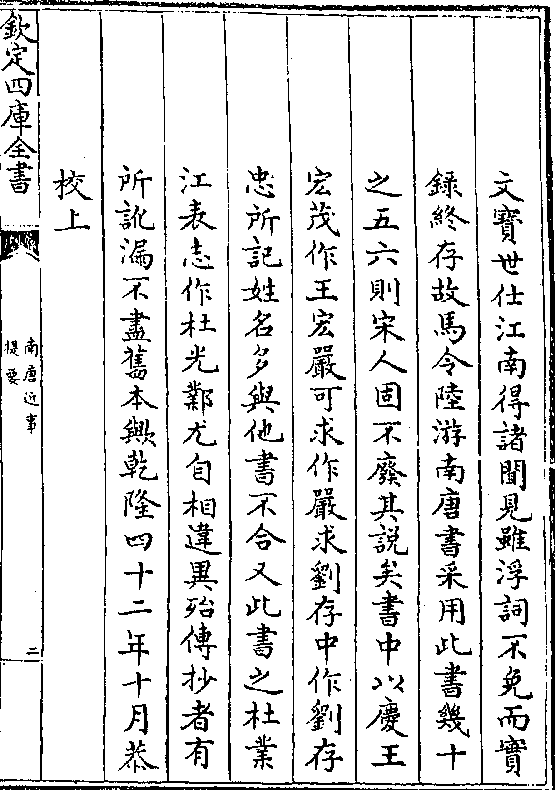 文寶世仕江南得諸聞見雖浮詞不免而實
錄終存故馬令陸游南唐書采用此書幾十
之五六則宋人固不廢其説矣書中以慶王
宏茂作王宏嚴可求作嚴求劉存中作劉存
忠所記姓名多與他書不合又此書之杜業
江表志作杜光鄴尤自相違異殆傳抄者有
所訛漏不盡舊本歟乾隆四十二年十月恭
校上
欽定四庫全書
南唐近事
提要
二